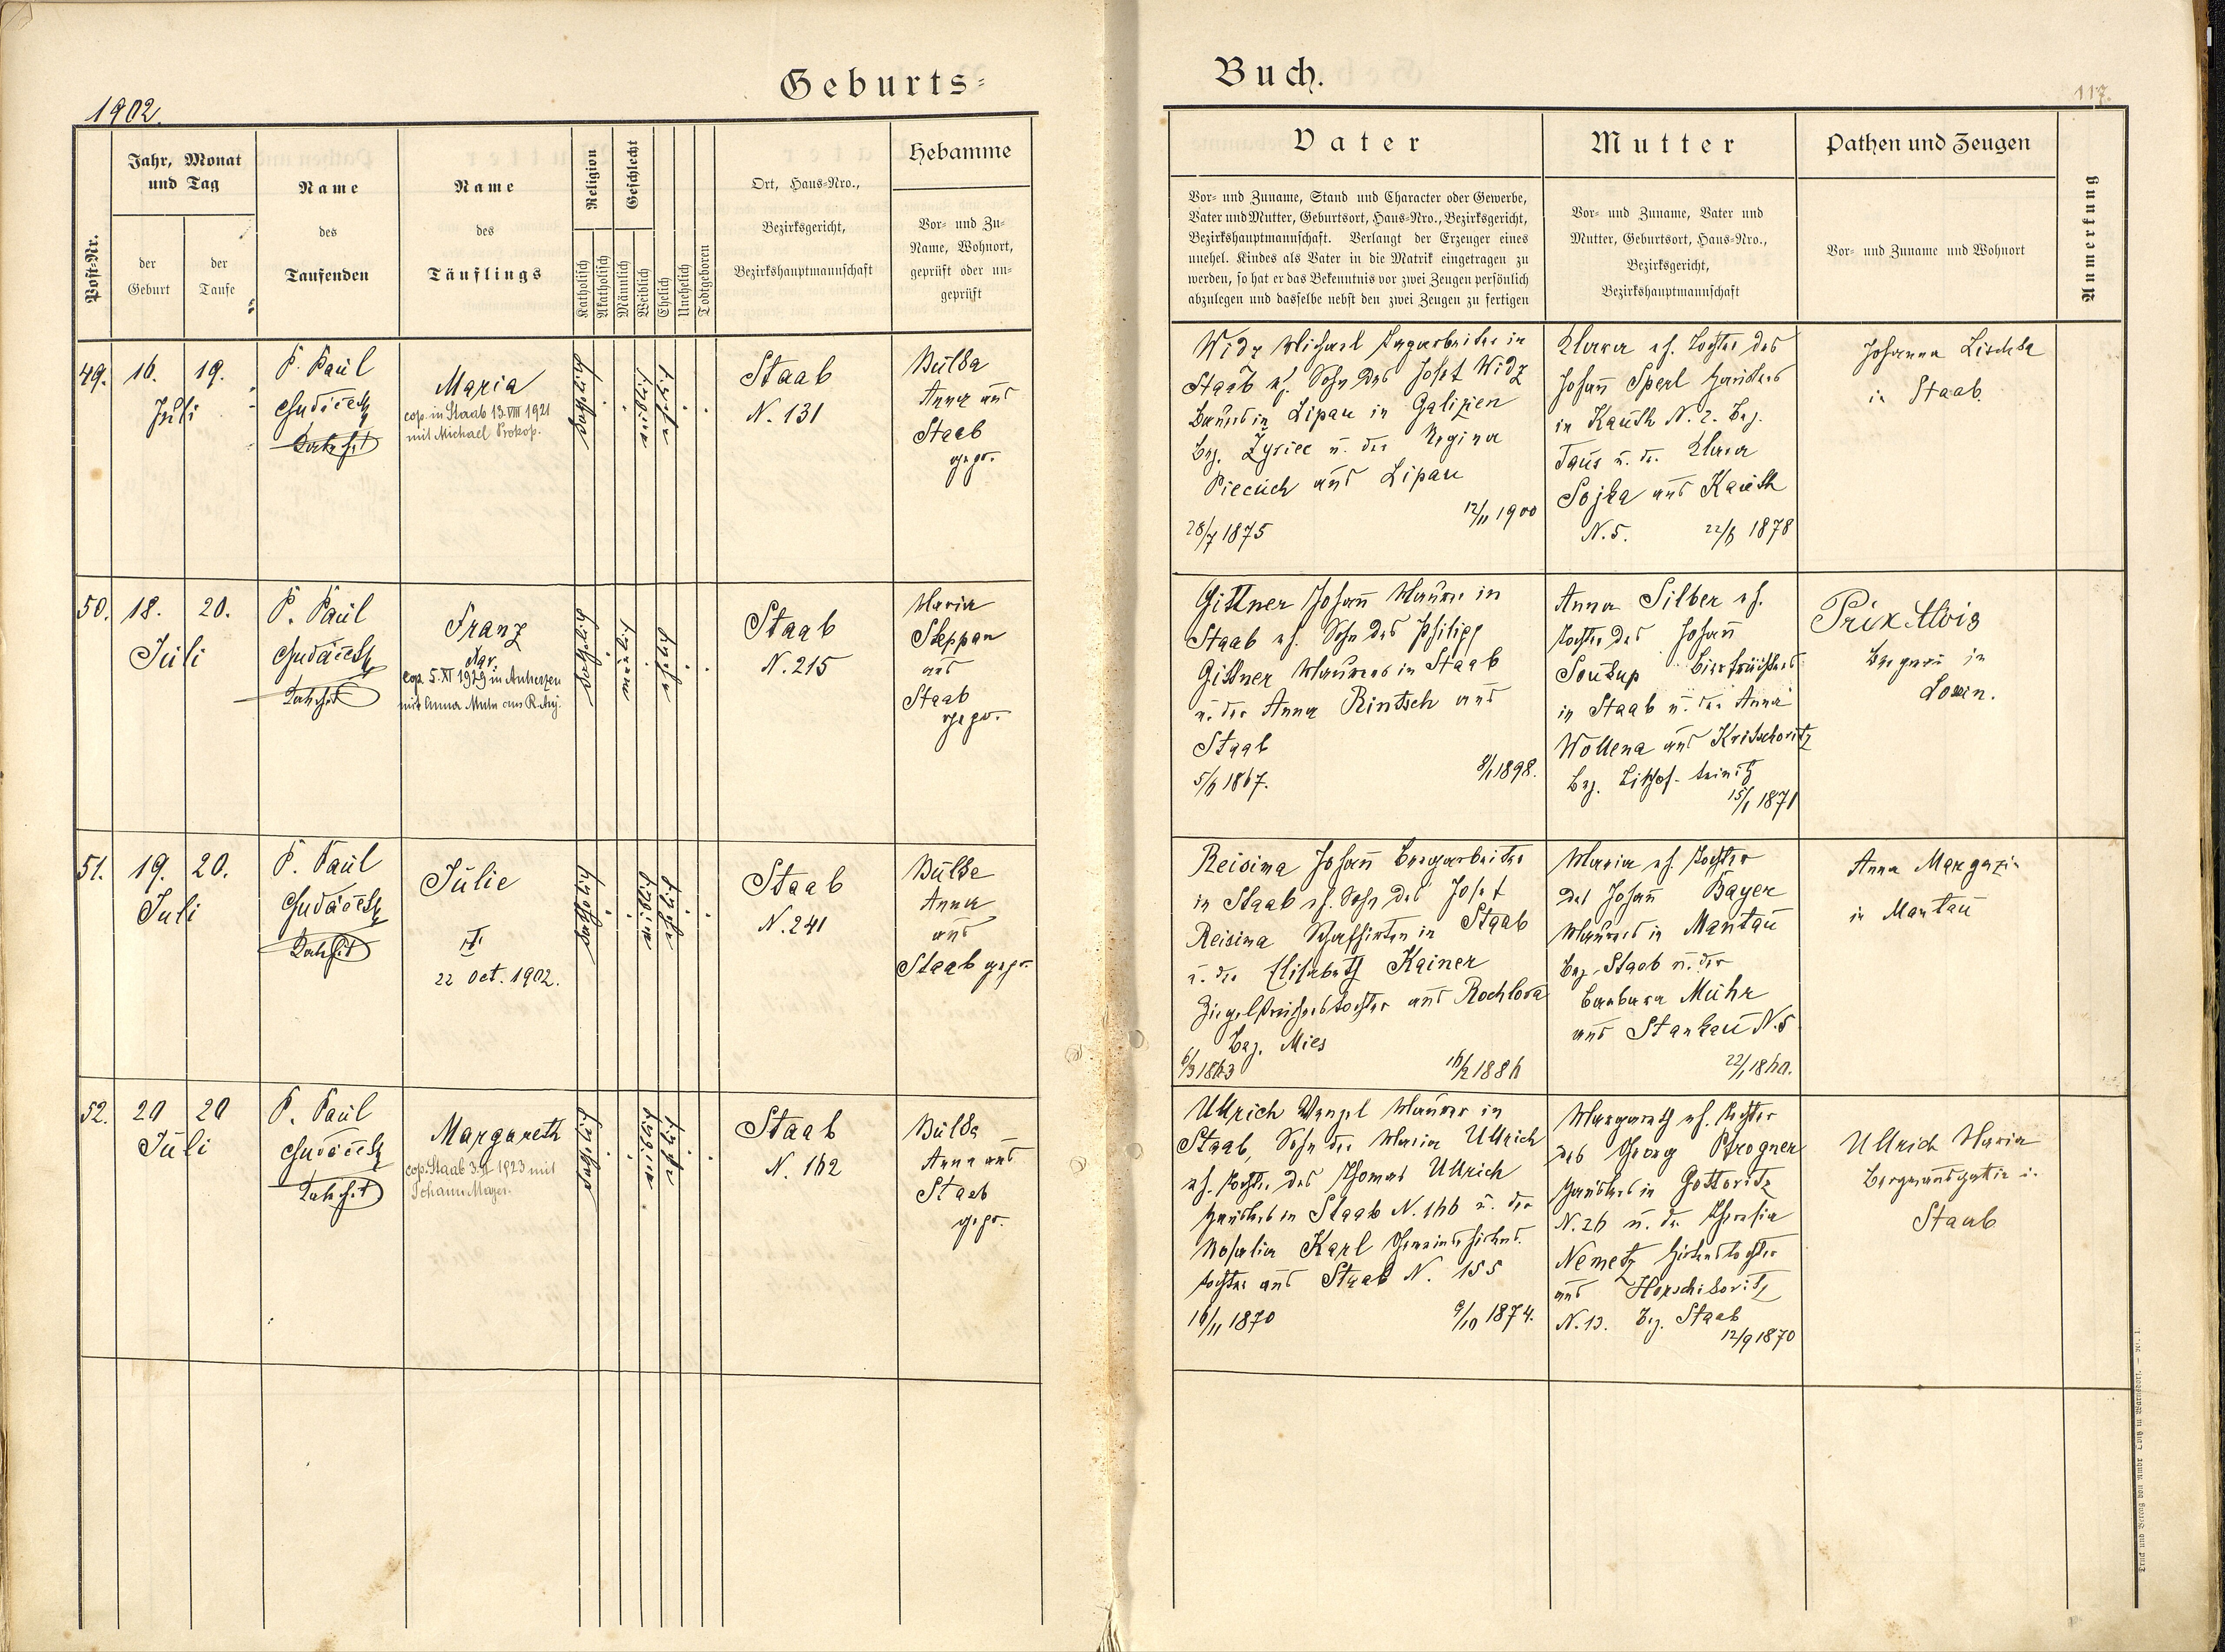 Geburts-
Buch.
1902.
117.
Post-Nr.
Jahr, Monat
und Tag
der
Geburt
der
Taufe
Name
des
Taufenden
Name
des
Täuflings
Religion
Katholisch
Akatholisch
Geschlecht
Männlich
Weiblich
Ehelich
Unehelich
Todtgeboren
Ort, Haus-Nro.,
Bezirksgericht,
Bezirkshauptmannschaft
Hebamme
Vor- und Zu-
Name, Wohnort,
geprüft oder un-
geprüft
Vater
Vor- und Zuname, Stand und Character oder Gewerbe,
Vater und Mutter, Geburtsort, Haus-Nro., Bezirksgericht,
Bezirkshauptmannschaft. Verlangt der Erzeuger eines
unehel. Kindes als Vater in die Matrik eingetragen zu
werden, so hat er das Bekenntnis vor zwei Zeugen persönlich
abzulegen und dasselbe nebst den zwei Zeugen zu fertigen
Mutter
Vor- und Zuname, Vater und
Mutter, Geburtsort, Haus-Nro.,
Bezirksgericht,
Bezirkshauptmannschaft
Pathen und Zeugen
Vor- und Zuname und Wohnort
Anmerkung
49.
16.
19.
Juli
P. Paul
Maria
cop. in Staab 13. VIII 1921
mit Michael Prokop.
katholisch
weiblich
ehelich
Staab
N. 131
Bulba
Anna aus
Staab
gepr.
Widz Michael Tagarbeiter in
Staab eh. Sohn des Josef Widz
Bauers in Lipau in Galizien
Bez. Zyriec u. der Regina
Piecuch aus Lipau
28/7 1875
12/11 1900
Klara eh. Tochter des
Johann Sperl Häuslers
in Kauth N. 2. Bez.
Taus u. der Klara
Sojka aus Kauth
N. 5.
22/6 1878
Johanna Lischka
in Staab.
50.
18.
20.
Juli
P. Paul
Franz
cop. 5. XI 1929 in Auherzen
mit Anna
katholisch
männlich
ehelich
Staab
N. 215
Maria
Steppan
aus
Staab
gepr.
Gittner Johann Maurer in
Staab eh. Sohn des Philipp
Gittner Maurers in Staab
u. der Anna Rintsch aus
Staab
5/6 1867.
8/1 1898.
Anna Silber eh.
Tochter des Johann
Soukup
in Staab u. der Anna
Wollena aus Kritschowitz
Bez.
15/1 1871
Prix Alois
in
51.
19.
20.
Juli
P. Paul
Julie
22 Oct. 1902.
katholisch
weiblich
ehelich
Staab
N. 241
Bulba
Anna
aus
Staab gepr.
Reisima Johann Bergarbeiter
in Staab eh. Sohn des Josef
Reisima Schafhirten in Staab
u. der Elisabeth Kainer
Ziegelstreicherstochter aus Rochlova
Bez. Mies
6/3 1863
16/2 1886
Maria eh. Tochter
des Johann Bayer
Maurers in Mantau
Bez. Staab u. der
Barbara Mühr
aus Stankau N. 5
22/1 1860.
Anna
in Mantau
52.
20
20
Juli
P. Paul
Margareth
cop. Staab 3. II 1923 mit
Johann Mayer.
katholisch
weiblich
ehelich
Staab
N. 162
Bulba
Anna aus
Staab
gepr.
Ullrich Wenzel Maurer in
Staab, Sohn der Maria Ullrich
eh. Tochter des Thomas Ullrich
Häuslers in Staab N. 166 u. der
Rosalia Karl Gemeindehirtens
tochter aus Staab N. 155
16/11 1870
9/10 1874.
Margareth eh. Tochter
des Georg Pfrogner
Häuslers in Gottowitz
N. 26 u. der Theresia
Nemetz Hirtenstochter
aus Horschikowitz
N. 13. Bez. Staab
12/9 1870
Ullrich Maria
Bergmannsgattin in
Staab